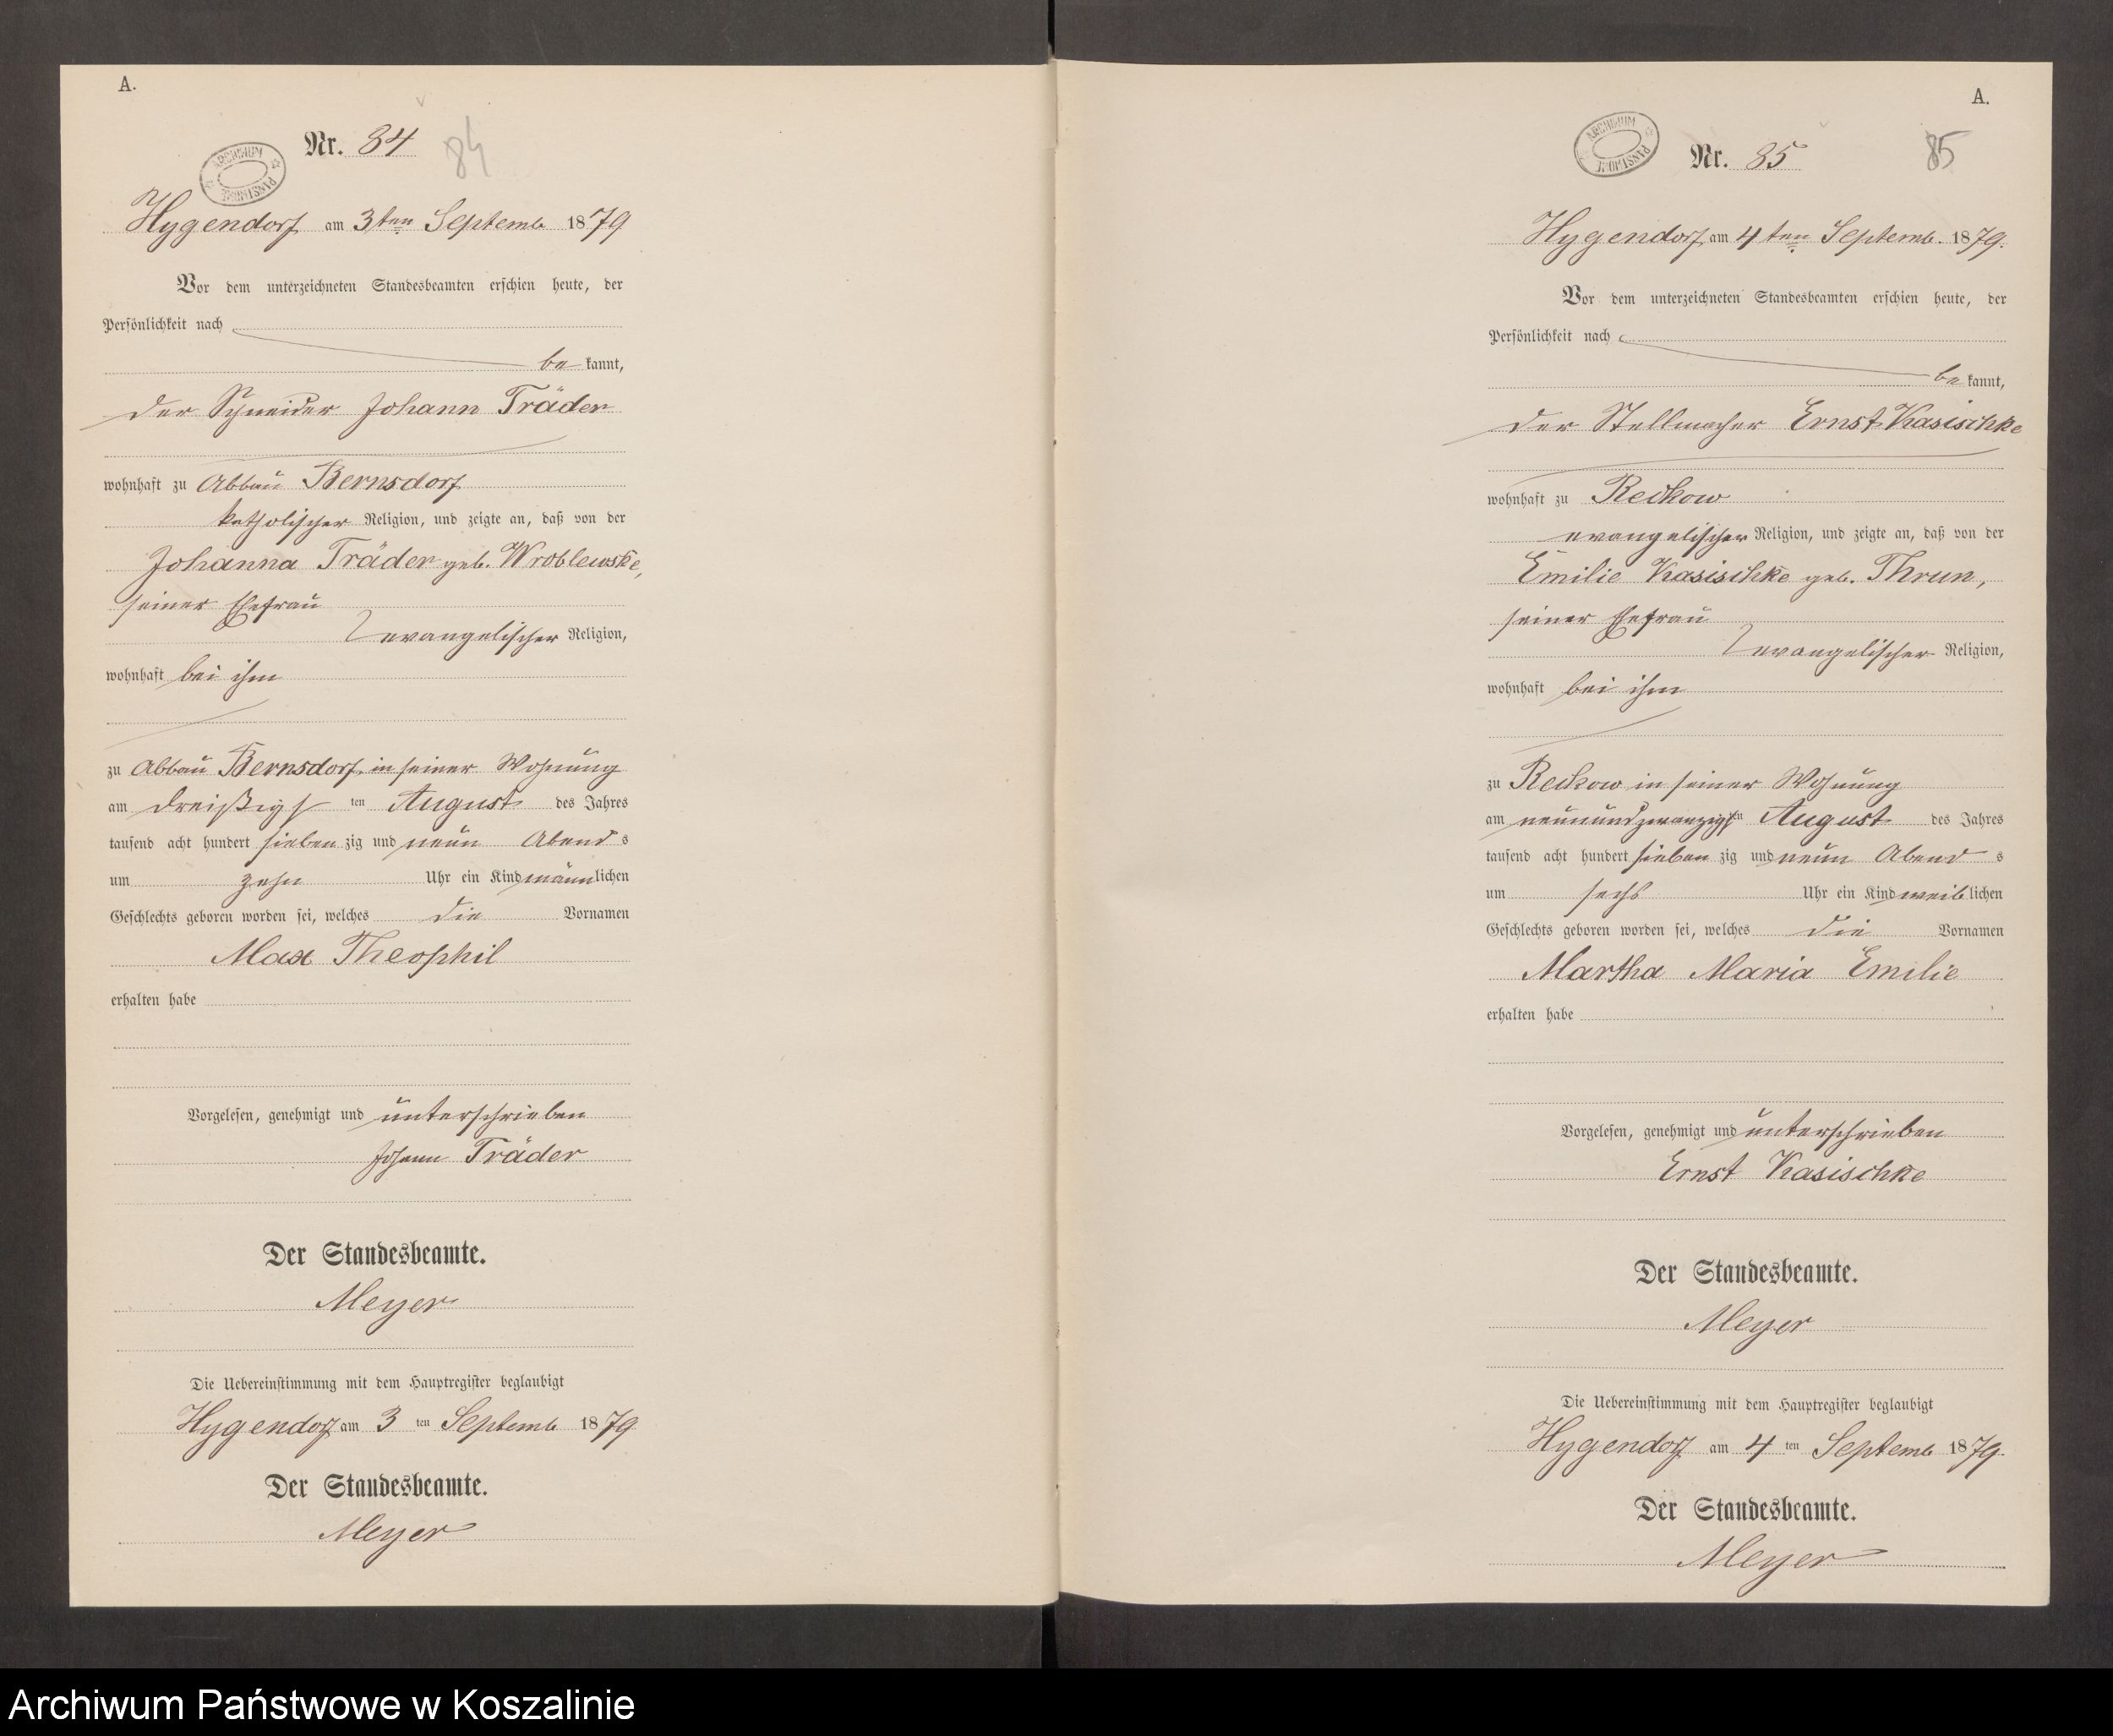 A.
Nr. 84
84
ARCHIWUM PAŃSTWOWE
Hygendorf am 3ten Septemb 1879
Vor dem unterzeichneten Standesbeamten erschien heute, der
Persönlichkeit nach
be kannt,
der Schneider Johann Träder
wohnhaft zu Abbau Bernsdorf
katholischer Religion, und zeigte an, daß von der
Johanna Träder geb. Wroblewske,
seiner Ehefrau
evangelischer Religion,
wohnhaft bei ihm
zu Abbau Bernsdorf in seiner Wohnung
am dreißigs ten August des Jahres
tausend acht hundert sieben zig und neun Abend s
um zehn Uhr ein Kind männlichen
Geschlechts geboren worden sei, welches die Vornamen
Max Theophil
erhalten habe
Vorgelesen, genehmigt und unterschrieben
Johann Träder
Der Standesbeamte.
Meyer
Die Uebereinstimmung mit dem Hauptregister beglaubigt
Hygendorf am 3 ten Septemb 1879
Der Standesbeamte.
Meyer
A.
ARCHIWUM PAŃSTWOWE
Nr. 85
85
Hygendorf am 4ten Septemb. 1879.
Vor dem unterzeichneten Standesbeamten erschien heute, der
Persönlichkeit nach
be kannt,
der Stellmacher Ernst Kasischke
wohnhaft zu Reckow
evangelischer Religion, und zeigte an, daß von der
Emilie Kasischke geb. Thrun,
seiner Ehefrau
evangelischer Religion,
wohnhaft bei ihm
zu Reckow in seiner Wohnung
am neunundzwanzigsten August des Jahres
tausend acht hundert sieben zig und neun Abend s
um sechs Uhr ein Kind weiblichen
Geschlechts geboren worden sei, welches die Vornamen
Martha Maria Emilie
erhalten habe
Vorgelesen, genehmigt und unterschrieben
Ernst Kasischke
Der Standesbeamte.
Meyer
Die Uebereinstimmung mit dem Hauptregister beglaubigt
Hygendorf am 4 ten Septemb 1879.
Der Standesbeamte.
Meyer
Archiwum Państwowe w Koszalinie